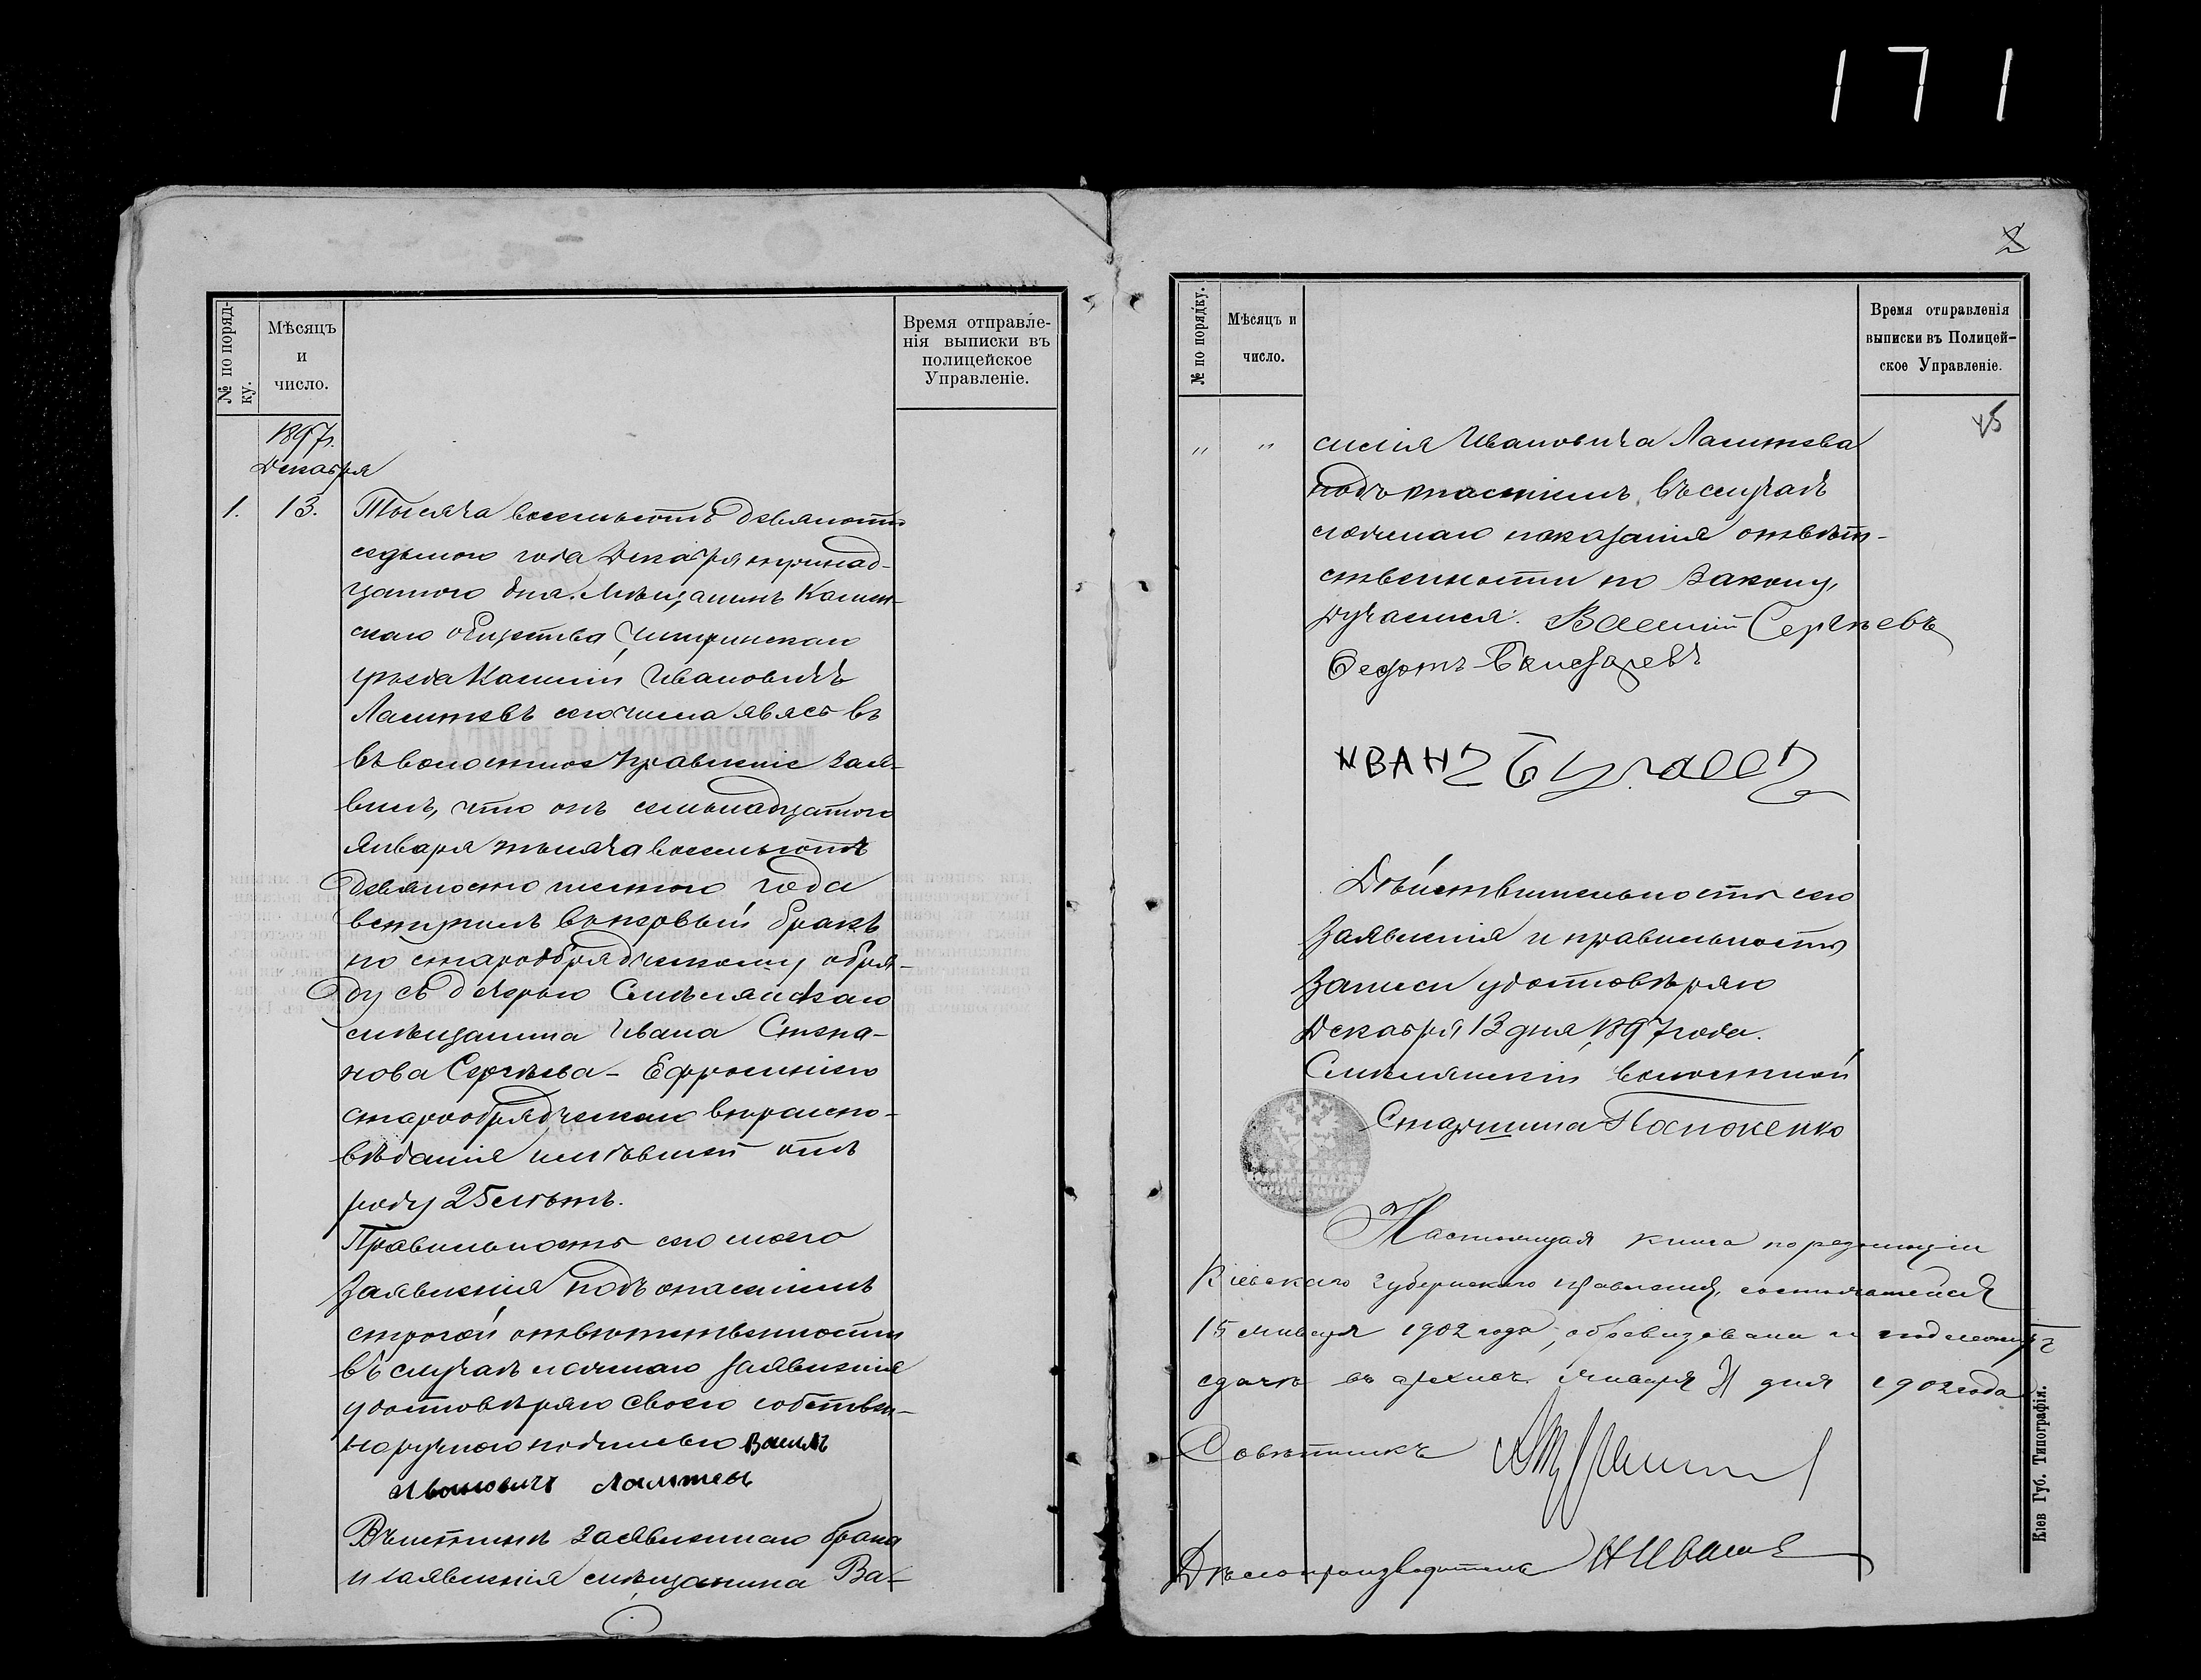 171
2
№ по поряд-
ку.
Мѣсяцъ
и
число.
Время отправле-
нія выписки въ
полицейское
Управленіе.
1897 г.
Декабря
1. 13. Тысяча восемьсотъ девяносто
седьмого года Декабря тринад-
цатого дня. Мѣщанинъ
скаго общества,
уѣзда Иановичъ
сего числа явясь въ
въ волостное Правленіе зая-
вилъ, что онъ семьнадцатого
Января тысяча восемьсотъ
девяносто шестого года
вступилъ въ первый бракъ
по старообрядческому обря-
ду съ дочерью Смѣлянскаго
мѣщанина Ивана Степа-
нова Сергѣева - Ефросиніею
старообрядческаго вѣроиспо-
вѣданія имѣвшей отъ
роду 25 лѣтъ.
Правильность сего моего
Заявленія подъ опасеніемъ
строгой отвѣтственности
въ случаѣ ложнаго заявленія
удостовѣряю своею собствен-
норучною подписью
Ивановичъ
заявленнаго брака
и заявленія мѣщанина Ва-
№ по порядку.
Мѣсяцъ и
число.
Время отправленія
выписки въ Полицей-
ское Управленіе.
" " силія Ивановича
подъ опасеніемъ, въ случаѣ
ложнаго показанія отвѣт-
ственности по Закону,
ручаемся: Василій Сергѣевъ
Федотъ
ИВАНЪ
Дѣйствительность сего
Заявленія и правильность
Записи удостовѣряю
Декабря 13 дня 1897 года.
Смѣлянскій волостной
Старшина
Настоящая книга по резолюціи
Кіевскаго Губернскаго Правленія, состоявшейся
15 Января 1902 года, обревизована и подлежитъ
сдачѣ въ архивъ. Января 21 дня 1902 года
Совѣтникъ
Дѣлопроизводитель
Кіев Губ. Типографія.